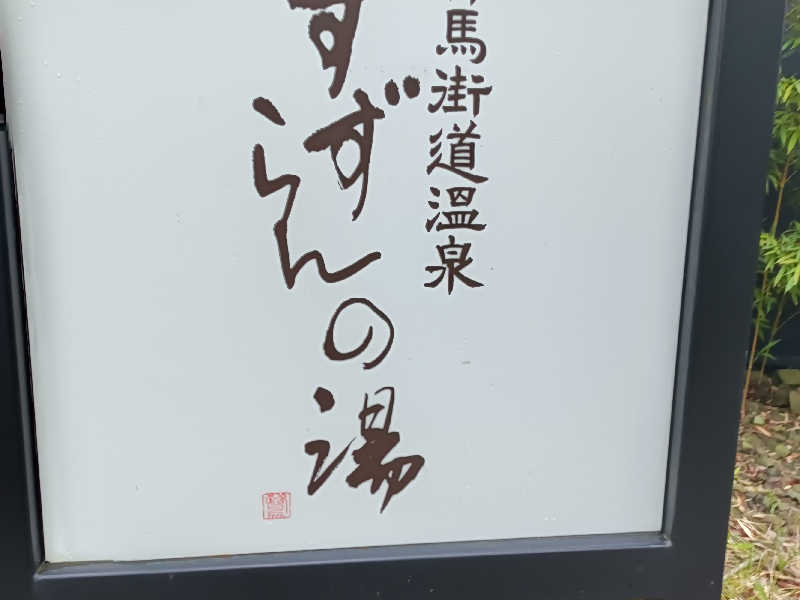 馬街道温泉
すずらんの湯